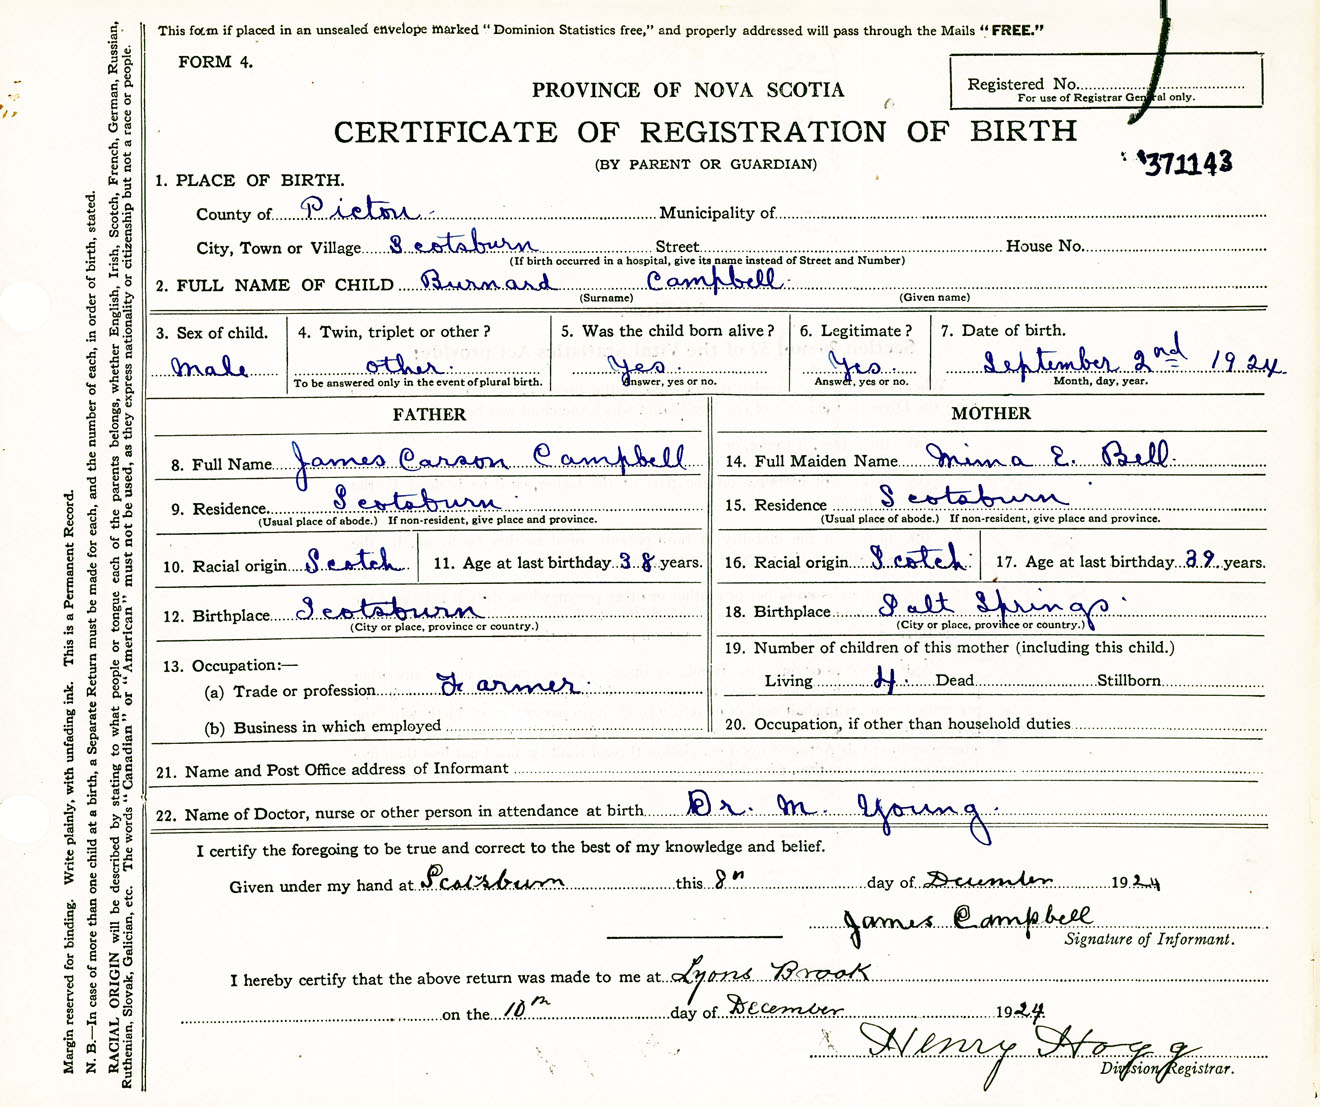 This form if placed in an unsealed envelope marked "Dominion Statistics free," and properly addressed will pass through the Mails "FREE."
FORM 4.
Registered No.
For use of Registrar General only.
PROVINCE OF NOVA SCOTIA
CERTIFICATE OF REGISTRATION OF BIRTH
(BY PARENT OR GUARDIAN)
371143
1. PLACE OF BIRTH.
County of Pictou Municipality of
City, Town or Village Scotsburn Street House No.
(If birth occurred in a hospital, give its name instead of Street and Number)
2. FULL NAME OF CHILD Burnard Campbell
(Surname) (Given name)
3. Sex of child. 4. Twin, triplet or other? 5. Was the child born alive? 6. Legitimate? 7. Date of birth.
Male other. Yes. Yes. September 2nd 1924
To be answered only in the event of plural birth. Answer, yes or no. Answer, yes or no. Month, day, year.
FATHER
8. Full Name James Carson Campbell
9. Residence Scotsburn
(Usual place of abode.) If non-resident, give place and province.
10. Racial origin Scotch 11. Age at last birthday 38 years.
12. Birthplace Scotsburn
(City or place, province or country.)
13. Occupation:—
(a) Trade or profession Farmer.
(b) Business in which employed
MOTHER
14. Full Maiden Name Mima E. Bell
15. Residence Scotsburn
(Usual place of abode.) If non-resident, give place and province.
16. Racial origin Scotch 17. Age at last birthday 39 years.
18. Birthplace Salt Springs
(City or place, province or country.)
19. Number of children of this mother (including this child.)
Living 4. Dead Stillborn
20. Occupation, if other than household duties
21. Name and Post Office address of Informant
22. Name of Doctor, nurse or other person in attendance at birth Dr. M. Young.
I certify the foregoing to be true and correct to the best of my knowledge and belief.
Given under my hand at Scotsburn this 8th day of December 1924
James Campbell
Signature of Informant.
I hereby certify that the above return was made to me at Lyons Brook
on the 10th day of December 1924
Henry Hogg
Division Registrar.
Margin reserved for binding. Write plainly, with unfading ink. This is a Permanent Record.
N. B.—In case of more than one child at a birth, a Separate Return must be made for each, and the number of each, in order of birth, stated.
RACIAL ORIGIN will be described by stating to what people or tongue each of the parents belongs, whether English, Irish, Scotch, French, German, Russian,
Ruthenian, Slovak, Galician, etc. The words "Canadian" or "American" must not be used, as they express nationality or citizenship but not a race or people.